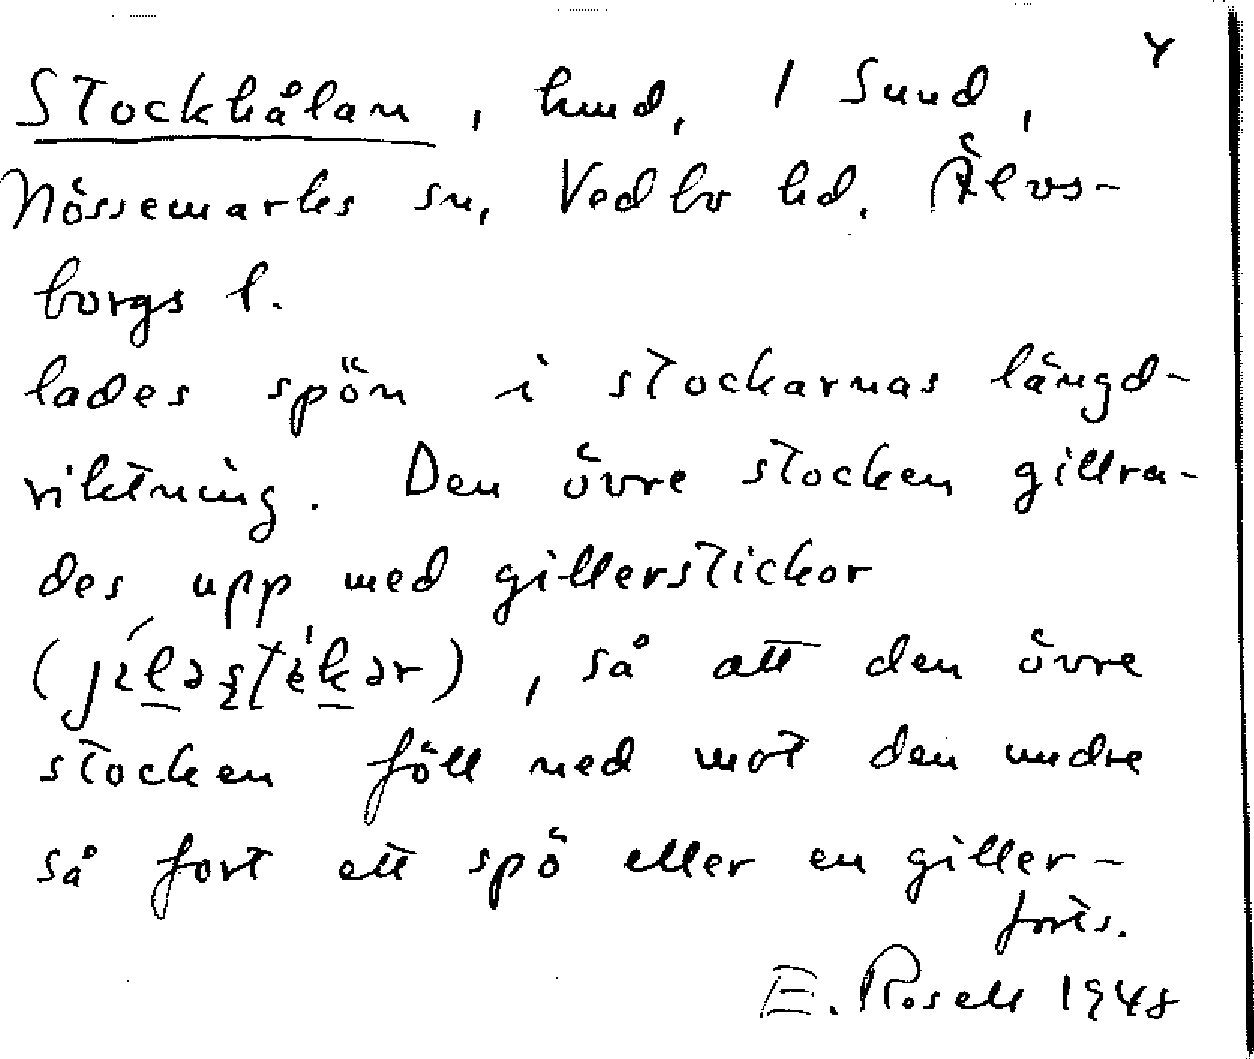 4
Stockhålan, hmd, 1 Sund,
Nössemarks sn, Vedbo hd. Älvs-
borgs l.
lades spön i stockarnas längd-
riktning. Den övre stocken gillra-
des upp med gillerstickor
, så att den övre
stocken föll ned mot den undre
så fort ett spö eller en giller-
forts.
E. Rosell 1948